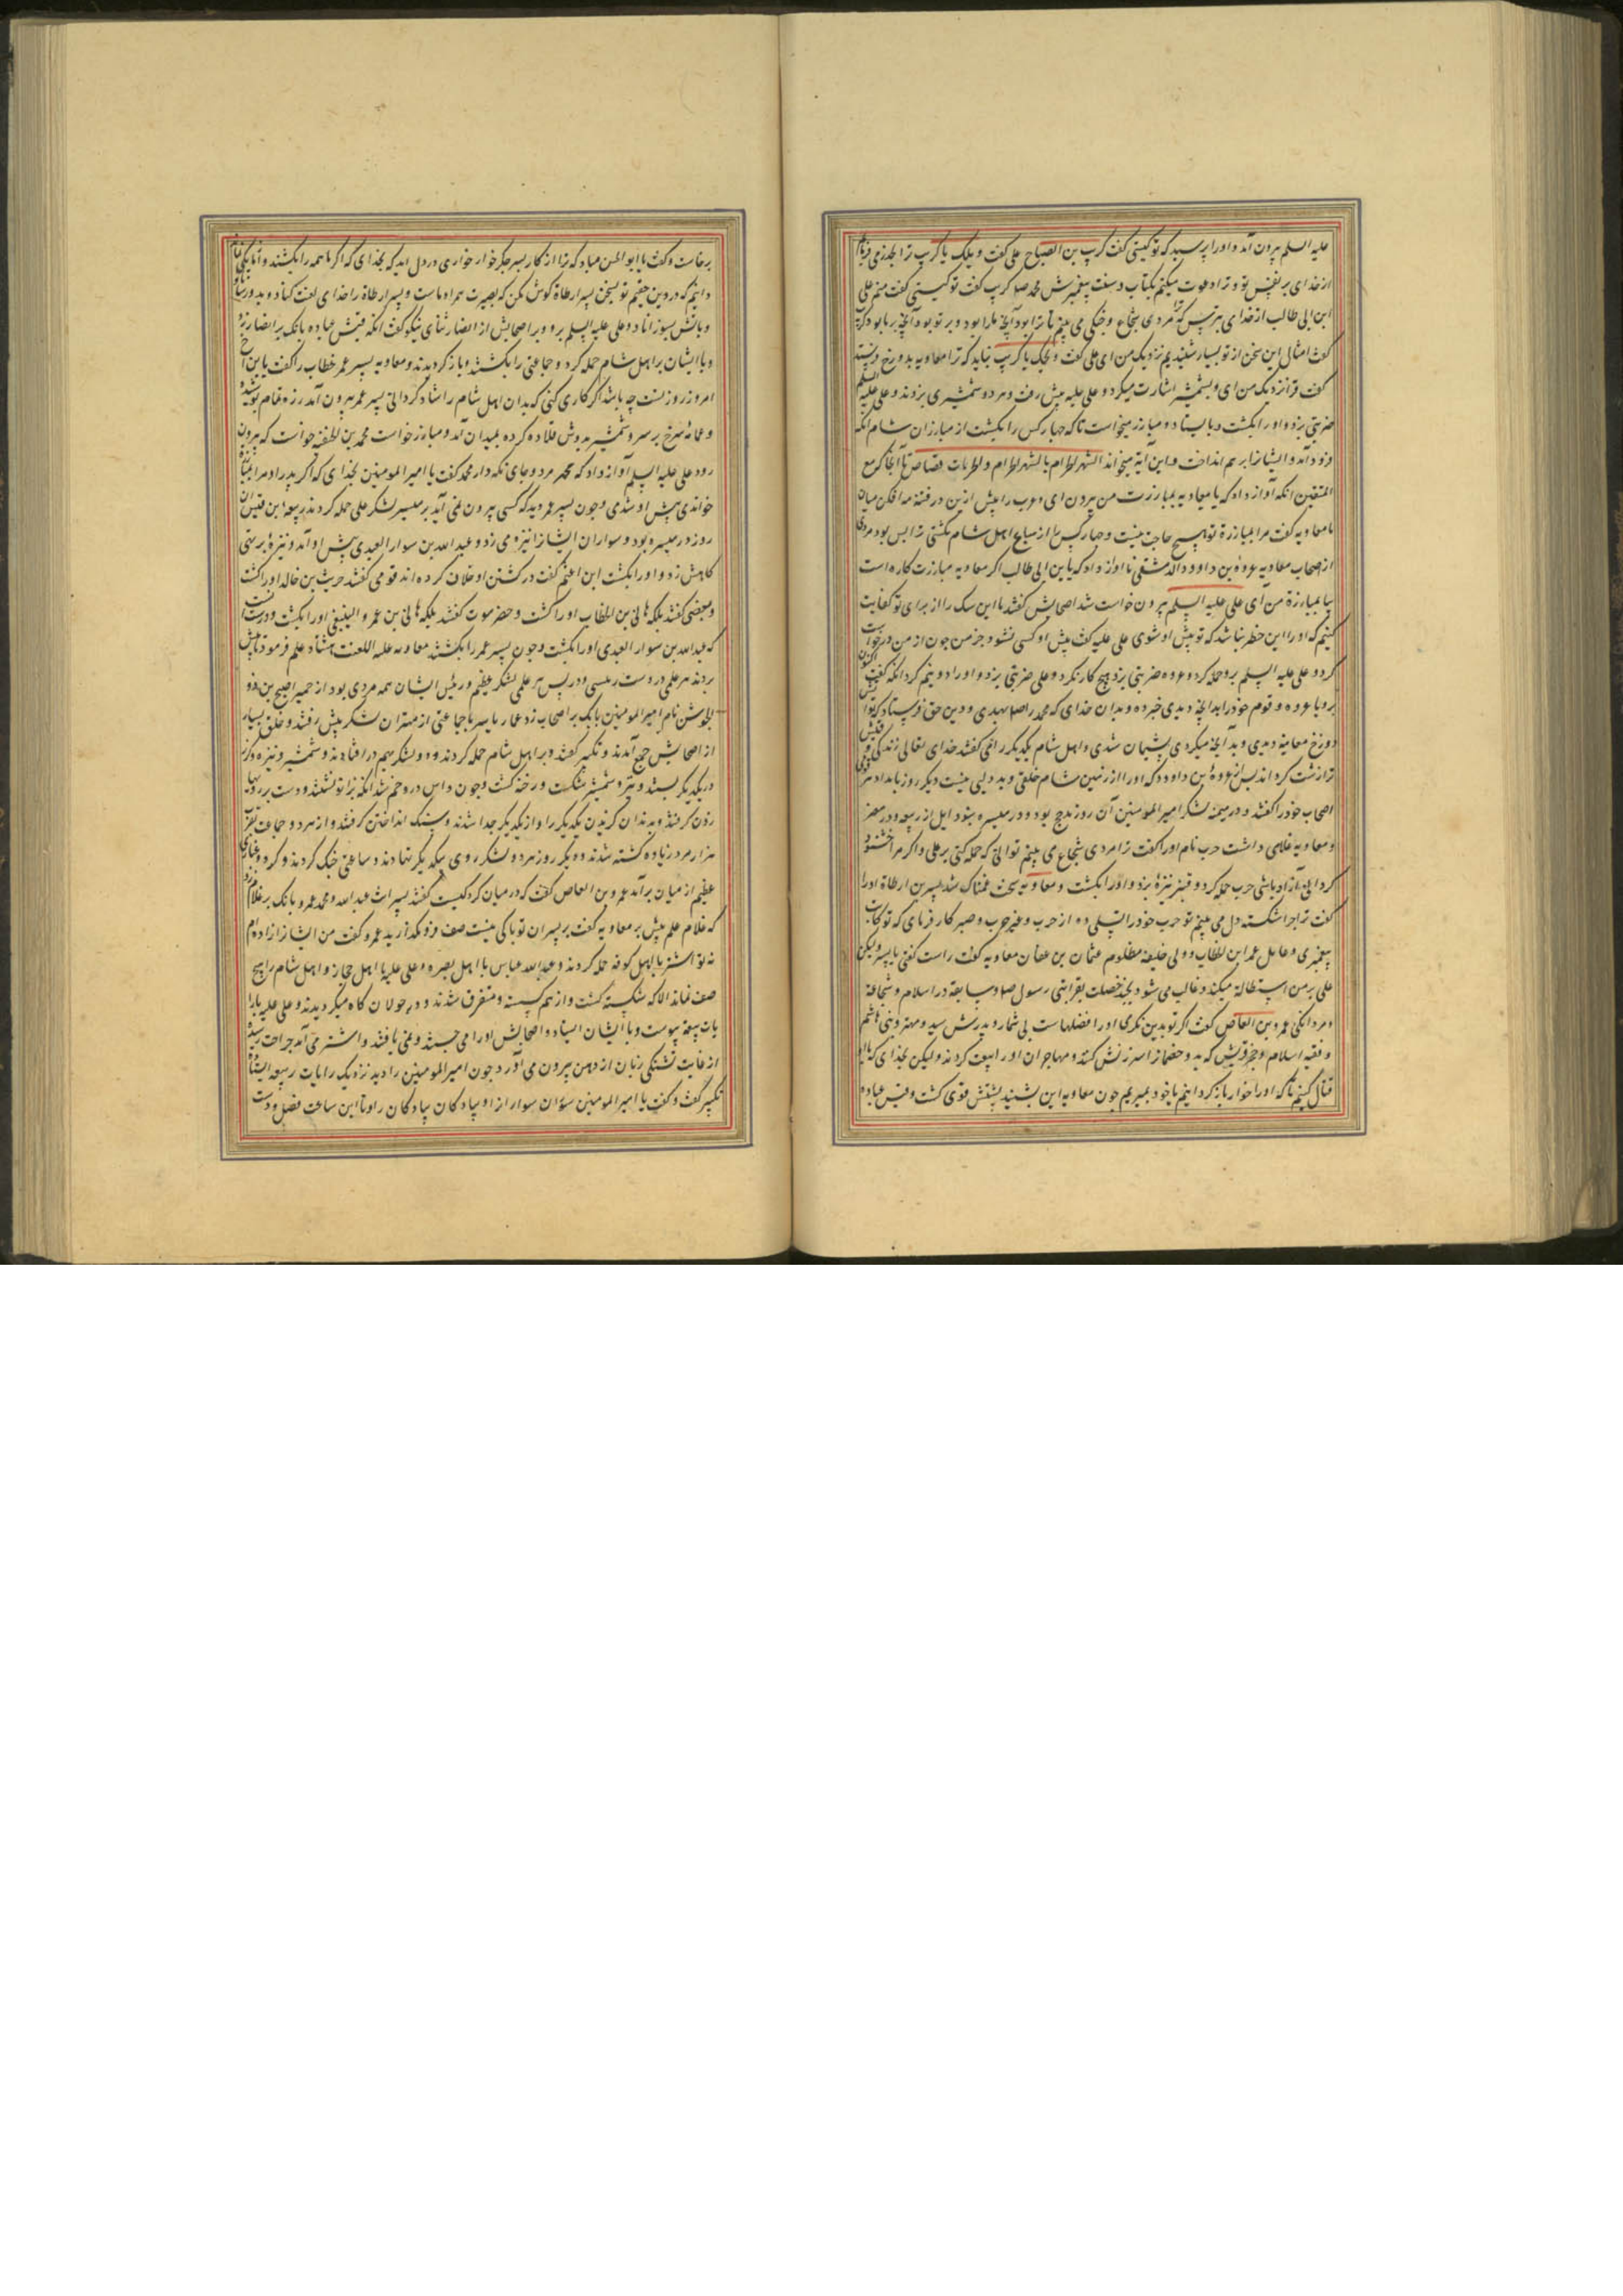 علیه السلم بیرون آمد و او را پرسید که تو کیستی گفت کریب بن الصباح علی گفت ویلک یا کریب ترا تحذیر می فرمایم
از خدای بر نفس تو و ترا دعوت میکنم بکتاب و سنت پیغمبرش محمد صلعم کریب گفت تو کیستی گفت منم علی
ابن ابی طالب از خدای بترس که ترا مردی شجاع و جنکی می بینم تا ترا بود آنچه ما را بود و بر تو بود آنچه بر ما بود کریب
گفت امثال این سخن از تو بسیار شنیدیم نزدیک من ای علی گفت ویحک یا کریب نباید که ترا معاویه بدوزخ فرستد
گفت فراتر نزدیک من ای و بشمشیر اشارت میکرد و علی علیه السلم پیش رفت و هر دو شمشیری بزدند و علی علیه
ضربتی بزد و او را بکشت و بایستاد و مبارز میخواست تا که چهار کس را بکشت از مبارزان شام انکه
فرود آمد و ایشانرا بر هم انداخت و این آیة میخواند الشهر الحرام بالشهر الحرام والحرمات قصاص تا آنجا که مع
المتقین انکه آواز داد که یا معاویه بمبارزت من بیرون ای و عرب را بیش ازین در فتنه مه افکن میان
ما معاویه گفت مرا بمبارزة تو هیچ حاجت نیست و چهار کس را از سباع اهل شام بکشتی ترا بس بود مردی
از اصحاب معاویه عروة بن داوود الدمشقی نام اواز داد که یا ابن ابی طالب اکر معاویه مبارزت کاره است
بیا بمبارزة من آی علی علیه السلم بیرون خواست شد اصحابش گفتند ما این سک را از برای تو کفایت
کنیم که او را این خطر نباشد که تو پیش او شوی علی علیه گفت پیش او کسی نشود جز من چون از من درخواست
کرد و علی علیه السلم برو حمله کرد و عروه ضربتی بزد هیچ کار نکرد و علی ضربتی بزد و او را دو نیم کرد انکه گفت اکنون
برو یا عروه و قوم خود را بدانچه دیدی خبر ده و بدان خدای که محمد را صلعم بهدی و دین حق فرستاد که تو آتش
دوزخ معاینه دیدی و بدآنچه میکردی پشیمان شدی و اهل شام یکدیگر را می گفتند خدای تعالی زندکی
زشت کرداند پس از عروة بن داوود که او را از زمین شام خلفی و بدیلی نیست دیکر روز بامداد
اصحاب خود را گفتند و در میمنه لشکر امیر المومنین آن روز مذحج بود و در میسره بنو وایل از ربیعه و در مضر
و معاویه غلامی داشت حرب نام او را گفت ترا مردی شجاع می بینم توانی که حمله کنی بر علی و اکر مرا خشنود
کردانی آزاد باشی حرب حمله کرد و قنبر نیزهٔ بزد و او را بکشت و معاویه سخت غمناک شد بسر بن ارطاة او را
گفت ترا چرا شکسته دل می بینم تو حرب خود را تسلی ده از حرب و غیر حرب و صبر کار فرمای که تو کاتب
پیغمبری و عامل عمر ابن الخطاب و ولی خلیفه مظلوم عثمان بن عفان معاویه گفت راست کفتی یا بسر ولیکن
علی بر من استطالة میکند و غالب می شود بچند خصلت بقرابتی رسول صلعم و سابقه در اسلام و شجاعة
و مردانکی عمرو بن العاص گفت اکر تو بدین نکری او را فضلهاست بی شمار و پدرش سید و مهتر و بنی هاشم
و فقیه اسلام و جز قریش که بد و خصمان را سرزنش کنند و مهاجران او را بیعت کردند ولیکن بخدای که با او
قتال کنیم تا که او را خوار باز کردانیم یا خود بمیریم چون معاویه این بشنید پشتش قوی کشت و قیس عباده
برخاست و گفت یا ابو الحسن مباد که ترا از کار پسر جکر خوار خواری در دل اید که بخدای که اکر ما همه را بکشند و آنا یکی
دانیم که در دین حقیم تو سخن بسر ارطاة کوش مکن که بصیرت همراه ماست و بسر ارطاة را خدای لعنت کناد و بدوزخ
و بآتش بسوزاناد و علی علیه السلم برو و بر اصحابش از انصار ثنای نیکو گفت انکه قیس عباده بانک بر انصار زد
و با ایشان بر اهل شام حمله کرد و جماعتی را بکشتند و باز کردیدند و معاویه پسر عمر خطاب را گفت یا ابن اخ
امروز روز تست چه باشد اکر کاری کنی که بدان اهل شام را شاد کردانی پسر عمر بیرون آمد زره تمام پوشیده
و عمامهٔ سرخ بر سر و شمشیر بدوش قلاده کرده بمیدان آمد و مبارز خواست محمد بن الحنفیه خواست که بیرون
رود علی علیه السلم آواز داد که محمد مرو و جای نکه دار محمد گفت یا امیر المومنین بخدای که اکر پدر او مرا بمبارزة
خواندی پیش او شدی و چون پسر عمر دید که کسی بیرون نمی آید بر میسرهٔ لشکر علی حمله کردند ربیعه ابن قیس آن
روز در میسره بود و سواران ایشانرا نیزه می زد و عبد الله بن سوار العبدی پیش او آمد و نیزهٔ بر تهی
کاهش زد و او را بکشت ابن اعثم گفت در کشتن او خلاف کرده اند قومی گفتند حریث بن خالد او را کشت
و بعضی گفتند بلکه هانی بن الخطاب او را کشت و حضرموت گفتند بلکه هانی بن عمرو السبیعی او را بکشت و درست آنست
که عبدالله بن سوار العبدی او را بکشت و چون پسر عمر را بکشتند معاویه علیه اللعنت هشتاد علم فرمود تا پیش
بردند هر علمی در دست رئیسی و در پس هر علمی لشکر عظیم و رئیس ایشان همه مردی بود از حمیر اصبح بن ذو
الجوشن نام امیر المومنین بانک بر اصحاب زد عمار یاسر با جماعتی از مهتران لشکر پیش رفتند و خلق بسیار
از اصحابش جمع آمدند و تکبیر گفتند و بر اهل شام حمله کردند و دو لشکر بهم در افتادند و شمشیر و نیزه و گرز
در یکدیکر بستند و نیزه و شمشیر شکست و رخنه کشت و چون داس در و خم شد انکه بزانو نشستند و دست بر رویها
زدن کرفتند و بدندان کزیدن یکدیکر را و از یکدیکر جدا شدند و سنک انداختن کرفتند و از هر دو جماعت
هزار مرد زیاده کشته شدند و دیکر روز هر دو لشکر روی بیکدیکر نهادند و ساعتی جنک کردند و کرد و غباری
عظیم از میان برآمد عمرو بن العاص گفت که در میان کرد کیست گفتند پسرانت عبد الله و محمد عمرو بانک بر غلام زد
که غلام علم پیش بر معاویه گفت بر پسران تو باکی نیست صف فرو مکذارید عمرو گفت من ایشانرا زاده ام
نه تو اشتر با اهل کوفه حمله کردند و عبدالله عباس با اهل بصره و علی علیه با اهل حجاز و اهل شام را هیچ
صف نماند الا که شکسته کشت و از هم کسسته و متفرق شدند و در جولان کاه میکردیدند و علی علیه
بایات ربیعه پیوست و با ایشان ایستاد و اصحابش او را می جستند و نمی یافتند و اشتر می آمد جراحت رسیده
از غایت تشنکی زبان از دهن بیرون می آورد چون امیر المومنین را دید نزدیک رایات ربیعه ایستاده
تکبیر گفت و گفت یا امیر المومنین سواران سوار از او پیادکان پیادکان را و تا این ساعت فضل و دست